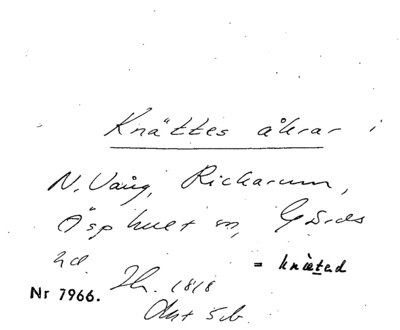 Knättes åkrar i
N. Vång, Rickarum,
Äsphult sn, Gärds
hd. Zh. 1818
= knäted
Nr 7966.
Akt 5b.